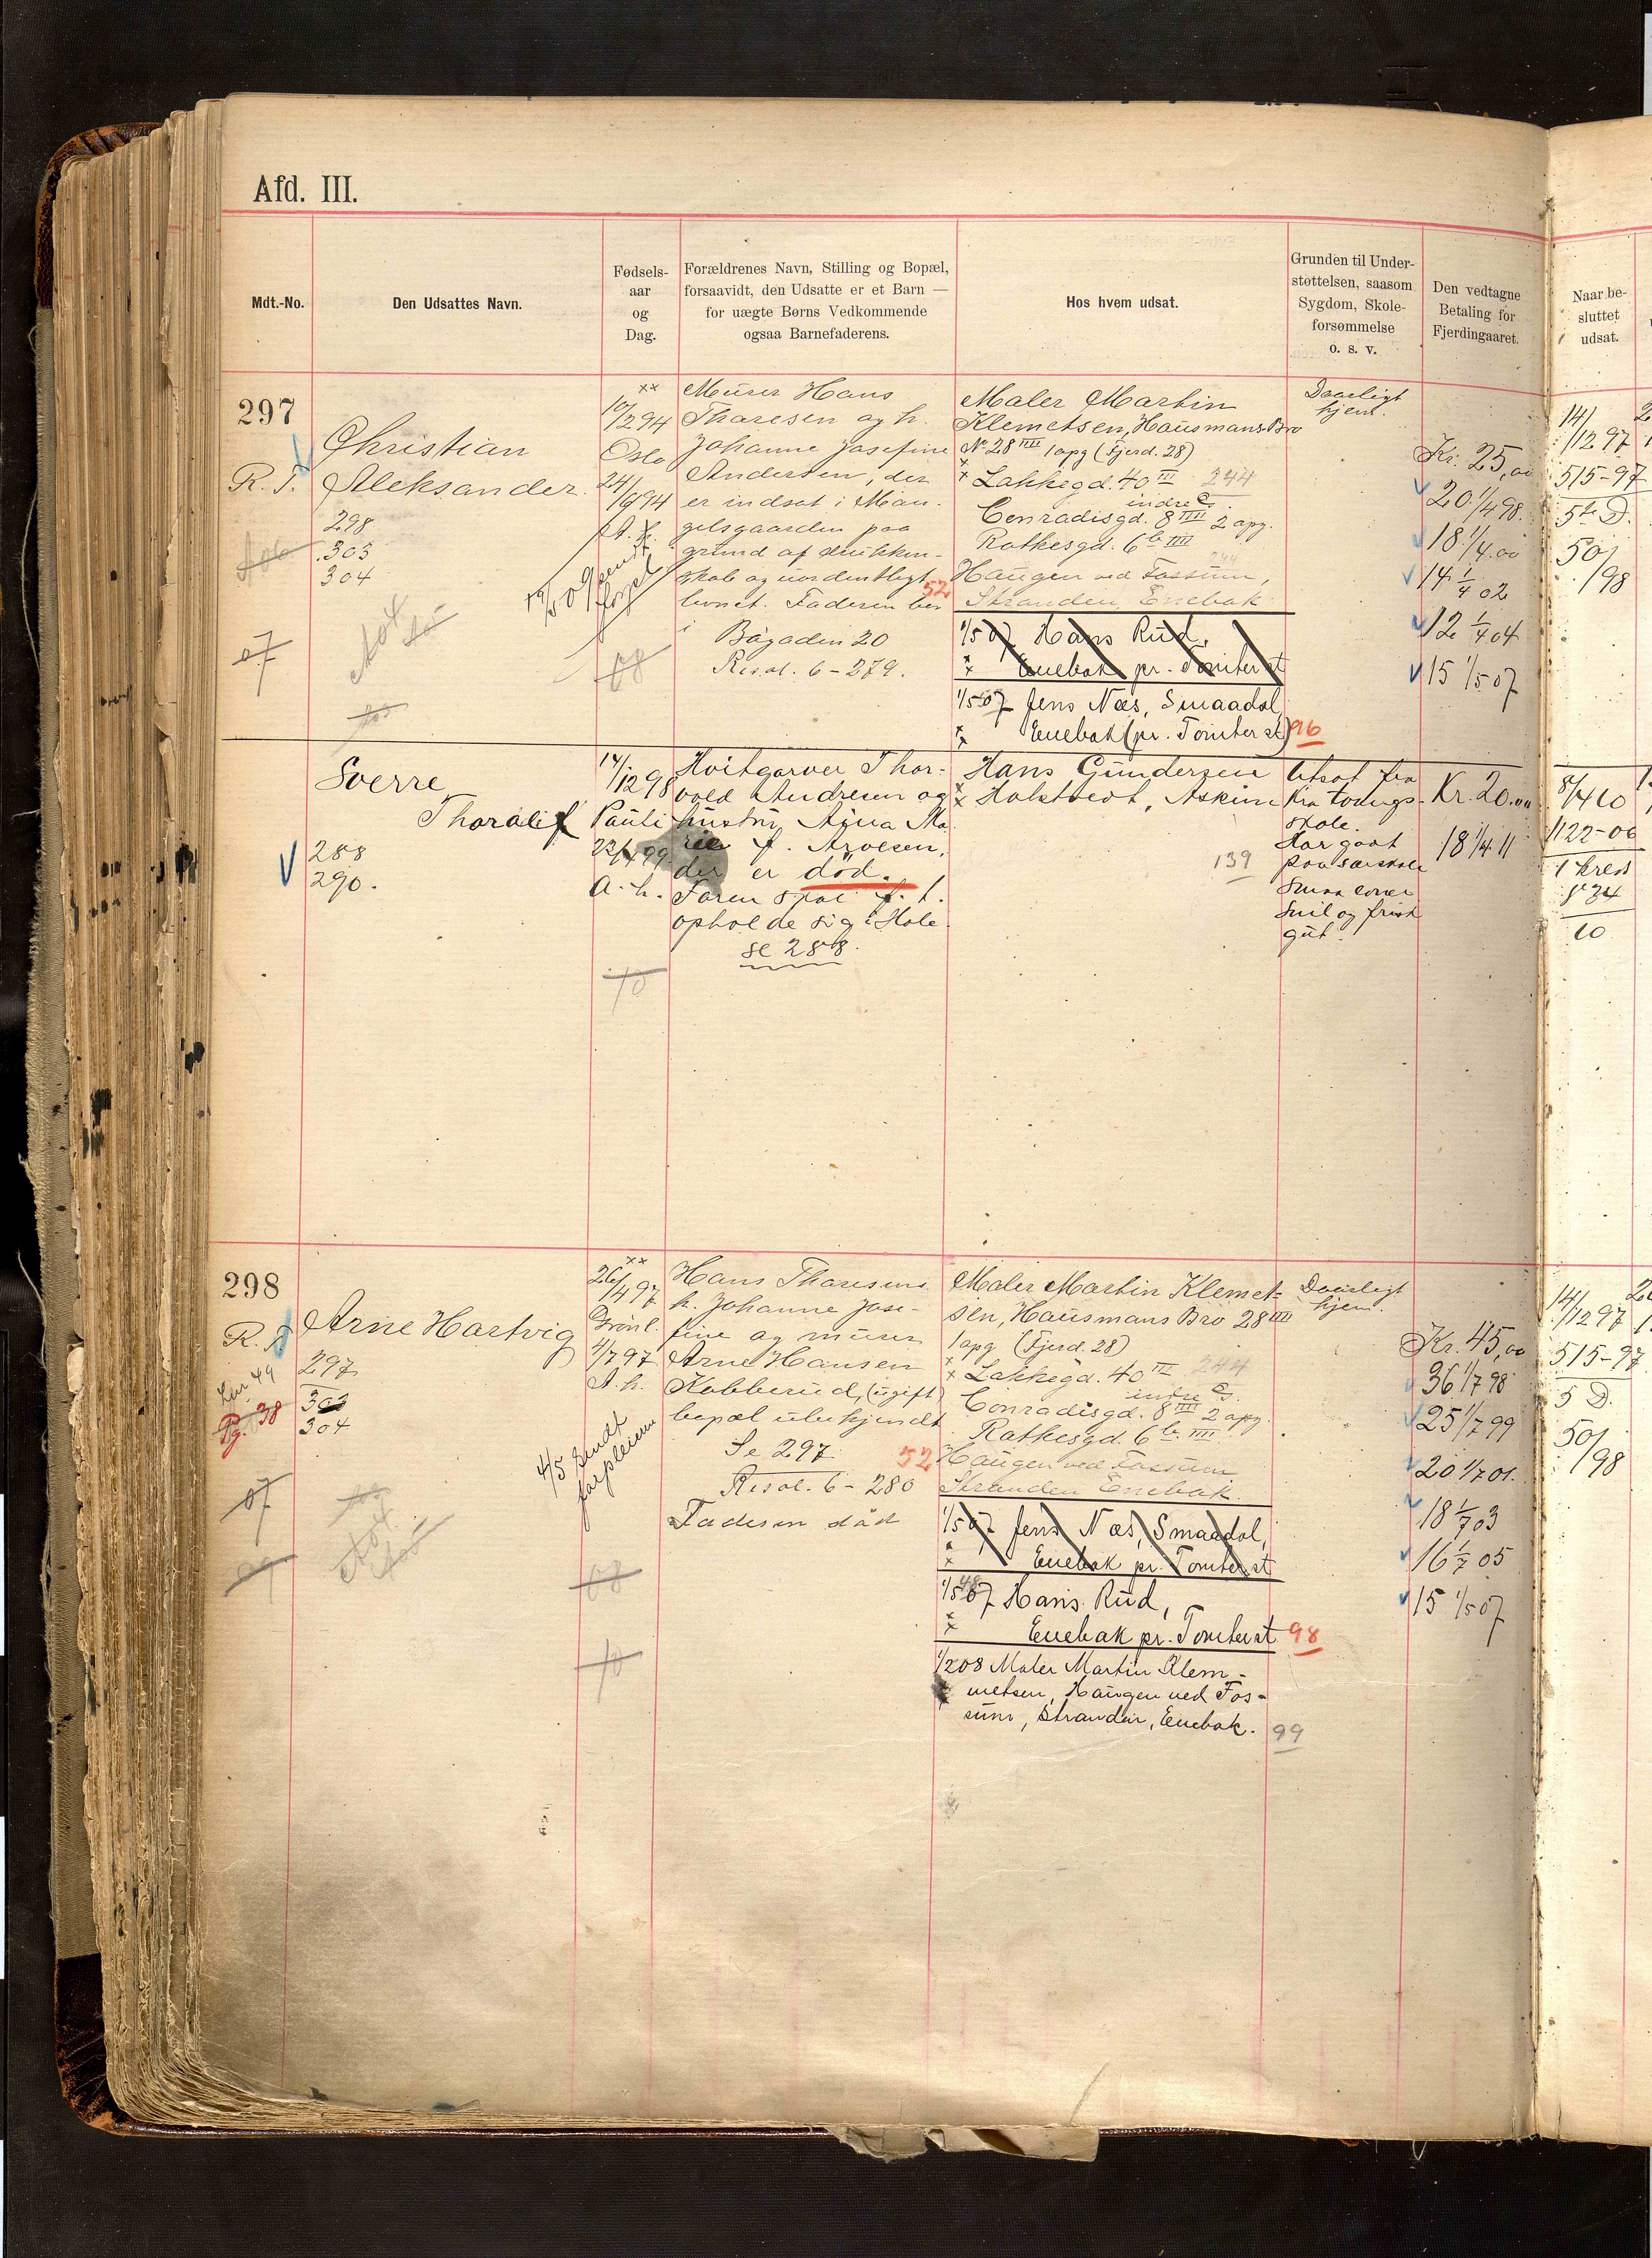 Afd. III.
Mdt.-No.
Den Udsattes Navn.
Fødsels-
aar
og
Dag.
Forældrenes Navn, Stilling og Bopæl,
forsaavidt, den Udsatte er et Barn —
for uægte Børns Vedkommende
ogsaa Barnefaderens.
Hos hvem udsat.
Grunden til Under-
støttelsen, saasom
Sygdom, Skole-
forsømmelse
o. s. v.
Den vedtagne
Betaling for
Fjerdingaaret.
Naar be-
sluttet
udsat.
297
R. T.
Christian
Aleksander.
298
303
304
07
xx
10/12 94
Oslo
24/6 94
A. h.
08
Murer Hans
Tharesen og h.
Johanne Josefine
Andersen, der
er indsat i Man-
gelsgaarden paa
grund af drikken-
skab og uordentligt
levnet. Faderen bor
i Bøgadin 20
Resol. 6 - 279.
Maler Martin
Klemetsen, Hausmans Bro
No 28 IIII 1 opg (Fjerd. 28)
x Lakkegd. 40 III 244
indre
Conradisgd. 8 IIII 2 opg.
Rathkesgd. 6 b IIII
Haugen ved Fossum,
52 Stranden, Enebak
1/5 07 Hans Rud,
x Enebak pr. Tomter st
1/5 07 Jens Næs, Smaadal,
x Enebak (pr. Tomter st) 96
Daarligt
hjem.
Kr. 25,00
20 1/4 98.
18 1/4 00
14 1/4 02
12 1/4 04
15 1/5 07
14/12 97
515-97
5te D.
50/98
Sverre
Thoralif
288
290.
14/12 98
Pauli
23/4 99
a. h.
10
Hvitgarver Thor-
vald Andresen og
hustru Anna Ma-
rie f. Arvesen,
der er død.
Faren skal f. t.
opholde sig i Hole
se 288.
Hans Gundersen
x Holstvedt, Askim
139
Utsat fra
Fra tvangs-
skole.
Har gaat
paa særskole
Smaa evner
Snil og frisk
gut.
Kr. 20.00
18 1/4 11
8/4 10
1122-06
1 kreds
§ 34
10
298
R. T.
Lnr. 49
Pg. 38
Arne Hartvig
297
303
304
07
09
xx
26/4 97
Grønl.
4/7 97
A. h.
4/5 sendt
forpleiern
08
10
Hans Tharesens
h. Johanne Jose-
fine og murer
Arne Hansen
Kobberud, (ugift)
bopæl ubekjendt
Se 297
Resol. 6 - 280
Faderen død
Maler Martin Klemet-
sen, Hausmans Bro 28 IIII
1 opg (Fjerd. 28)
x Lakkegd. 40 III 244
indre
Conradisgd. 8 IIII 2 opg.
Rathkesgd. 6 b. IIII
52 Haugen ved Fossum
Stranden Enebak.
1/5 07 Jens Næs, Smaadal,
x Enebak pr. Tomter st
1/5 07 Hans Rud,
x Enebak pr. Tomter st 98
1/2 08 Maler Martin Klem-
metsen, Haugen ved Fos-
sum, Stranden, Enebak. 99
Daarligt
hjem.
Kr. 45,00
36 1/7 98
25 1/7 99
20 1/7 01.
18 1/7 03
16 1/7 05
15 1/5 07
14/12 97
515-97
5 D.
50/98